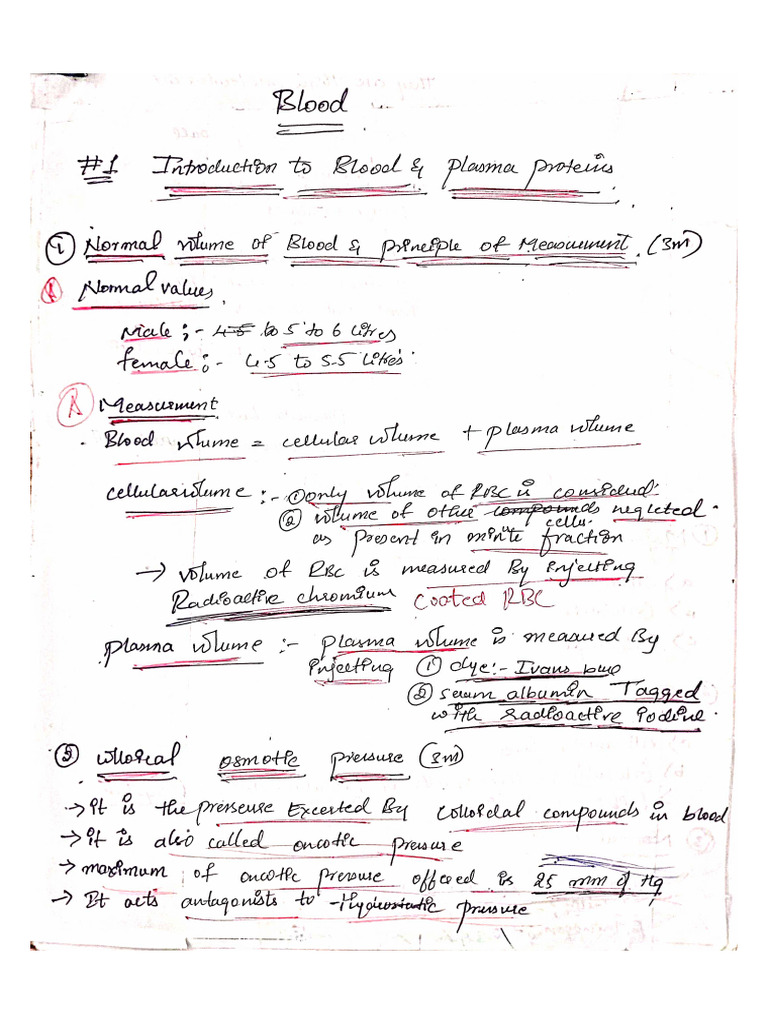 Blood
#1 Introduction to Blood & plasma proteins
① Normal volume of Blood & principle of Measurement. (3m)
Normal values
Male :- 4.5 to 5 to 6 litres
female :- 4.5 to 5.5 litres
Measurment
. Blood volume = cellular volume + plasma volume
cellular volume :- ① only volume of RBC is considered.
② volume of other compounds cells. negleted
as present in minute fraction
→ volume of RBC is measured By injecting
Radioactive chromium Coated RBC
plasma volume :- plasma volume is measured By
injecting ① dye:- Ivans blue
② serum albumin Tagged
with Radioactive iodine.
② colloidal osmotic pressure (3m)
→ it is the presseuse Excerted By colloidal compounds in blood
→ it is also called oncotic pressure
→ maximum of oncotic pressure offered is 25 mm of Hg
→ It acts antagonists to Hydrostatic pressure